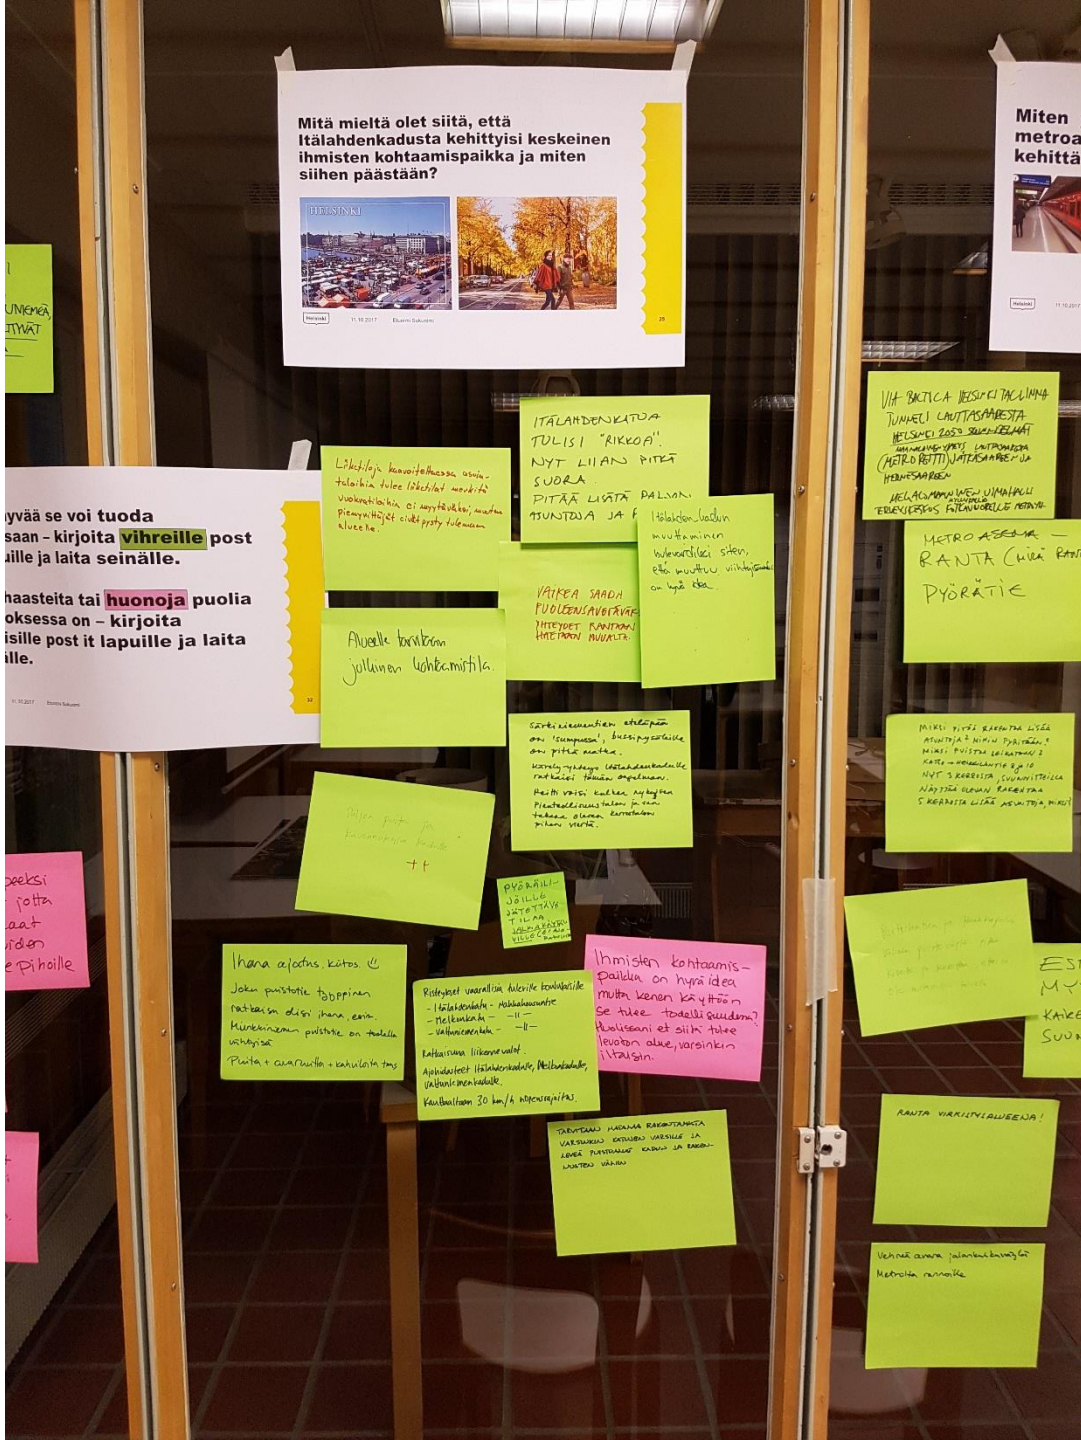 Mitä mieltä olet siitä, että
Itälahdenkadusta kehittyisi keskeinen
ihmisten kohtaamispaikka ja miten
siihen päästään?
HELSINKI
Helsinki
11.10.2017
25
Miten
metroa
kehittä
Helsinki
11.10.2017
yvää se voi tuoda
saan – kirjoita vihreille post
uille ja laita seinälle.
haasteita tai huonoja puolia
oksessa on – kirjoita
isille post it lapuille ja laita
lle.
11.10.2017
Liiketiloja kaavoitettaessa asuin-
taloihin tulee liiketilat merkitä
vuokratiloihin ei myytäviksi, muuten
pienyrittäjät eivät pysty tulemaan
alueelle.
ITÄLAHDENKATUA
TULISI "RIKKOA".
NYT LIIAN PITKÄ
SUORA.
PITÄÄ LISÄTÄ PALJON
ASUNTOJA JA
Itälahdenkadun
muuttaminen
bulevardiksi siten,
että muuttuu
on hyvä idea.
VAIKEA SAADA
PUOLEENSAVETÄVÄK
YHTEYDET RANTAAN
HAETAAN MUUALTA.
Alueelle tarvitaan
julkinen kohtaamistila.
Särkiniementien eteläpää
on 'sumpussa', bussipysäkille
on pitkä matka.
Kävely-yhteys Itälahdenkadulle
ratkaisi tämän ongelman.
Reitti voisi kulkea nykyisen
Pienteollisuustalon ja sen
takana olevan kerrostalon
pihan viertä.
Paljon puita ja
++
PYÖRÄILI-
JÖILLE
JÄTETTÄVÄ
TILAA
Ihana ajatus, kiitos. ☺
Joku puistotie tyyppinen
ratkaisu olisi ihana, esim.
Munkkiniemen puistotie on todella
viihtyisä
Puita + avaruutta + kahviloita tms
Risteykset vaarallisia tuleville koululaisille
- Itälahdenkatu - Haahkakuusentie
- Melkonkatu - -11-
- Vattuniemenkatu - -11-
Ratkaisuna liikennevalot.
Ajohidasteet Itälahdenkadulle, Melkonkadulle,
vattuniemenkadulle.
Kauttaaltaan 30 km/h nopeusrajoitus.
Ihmisten kohtaamis-
paikka on hyvä idea
mutta kenen käyttöön
se tulee todellisuudessa?
Huolissani et siitä tulee
levoton alue, varsinkin
iltaisin.
TARVITAAN MATALAA RAKENTAMISTA
VARSINKIN KATUJEN VARSILLE JA
LEVEÄ PUISTOALUE KADUN JA RAKEN-
NUSTEN VÄLIIN
VIA BALTICA HELSINKI TALLINNA
TUNNELI LAUTTASAARESTA
HELSINKI 2050 SUUNNITELMAT
(METROREITTI) JÄTKÄSAAREEN JA
HERNESAAREEN
UIMAHALLI
TERVEYSKESKUS
METROASEMA –
RANTA (MIKÄ RAN
PYÖRÄTIE
MIKSI PITÄÄ RAKENTAA LISÄÄ
ASUNTOJA? MIHIN PYRITÄÄN?
MIKSI PUISTOT
NYT 3 KERROSTA, SUUNNITTEILLA
NÄYTTÄÄ OLEVAN RAKENTAA
5 KERROSTA LISÄÄ ASUNTOJA, MIKSI?
ES
MY
KAIKE
SUUN
RANTA VIRKISTYSALUEENA!
Vehreä avara jalankulkuväylä
Metrolta rannoille
UNIEMEÄ,
TYVÄT
peeksi
jotta
aat
iden
e pihoille